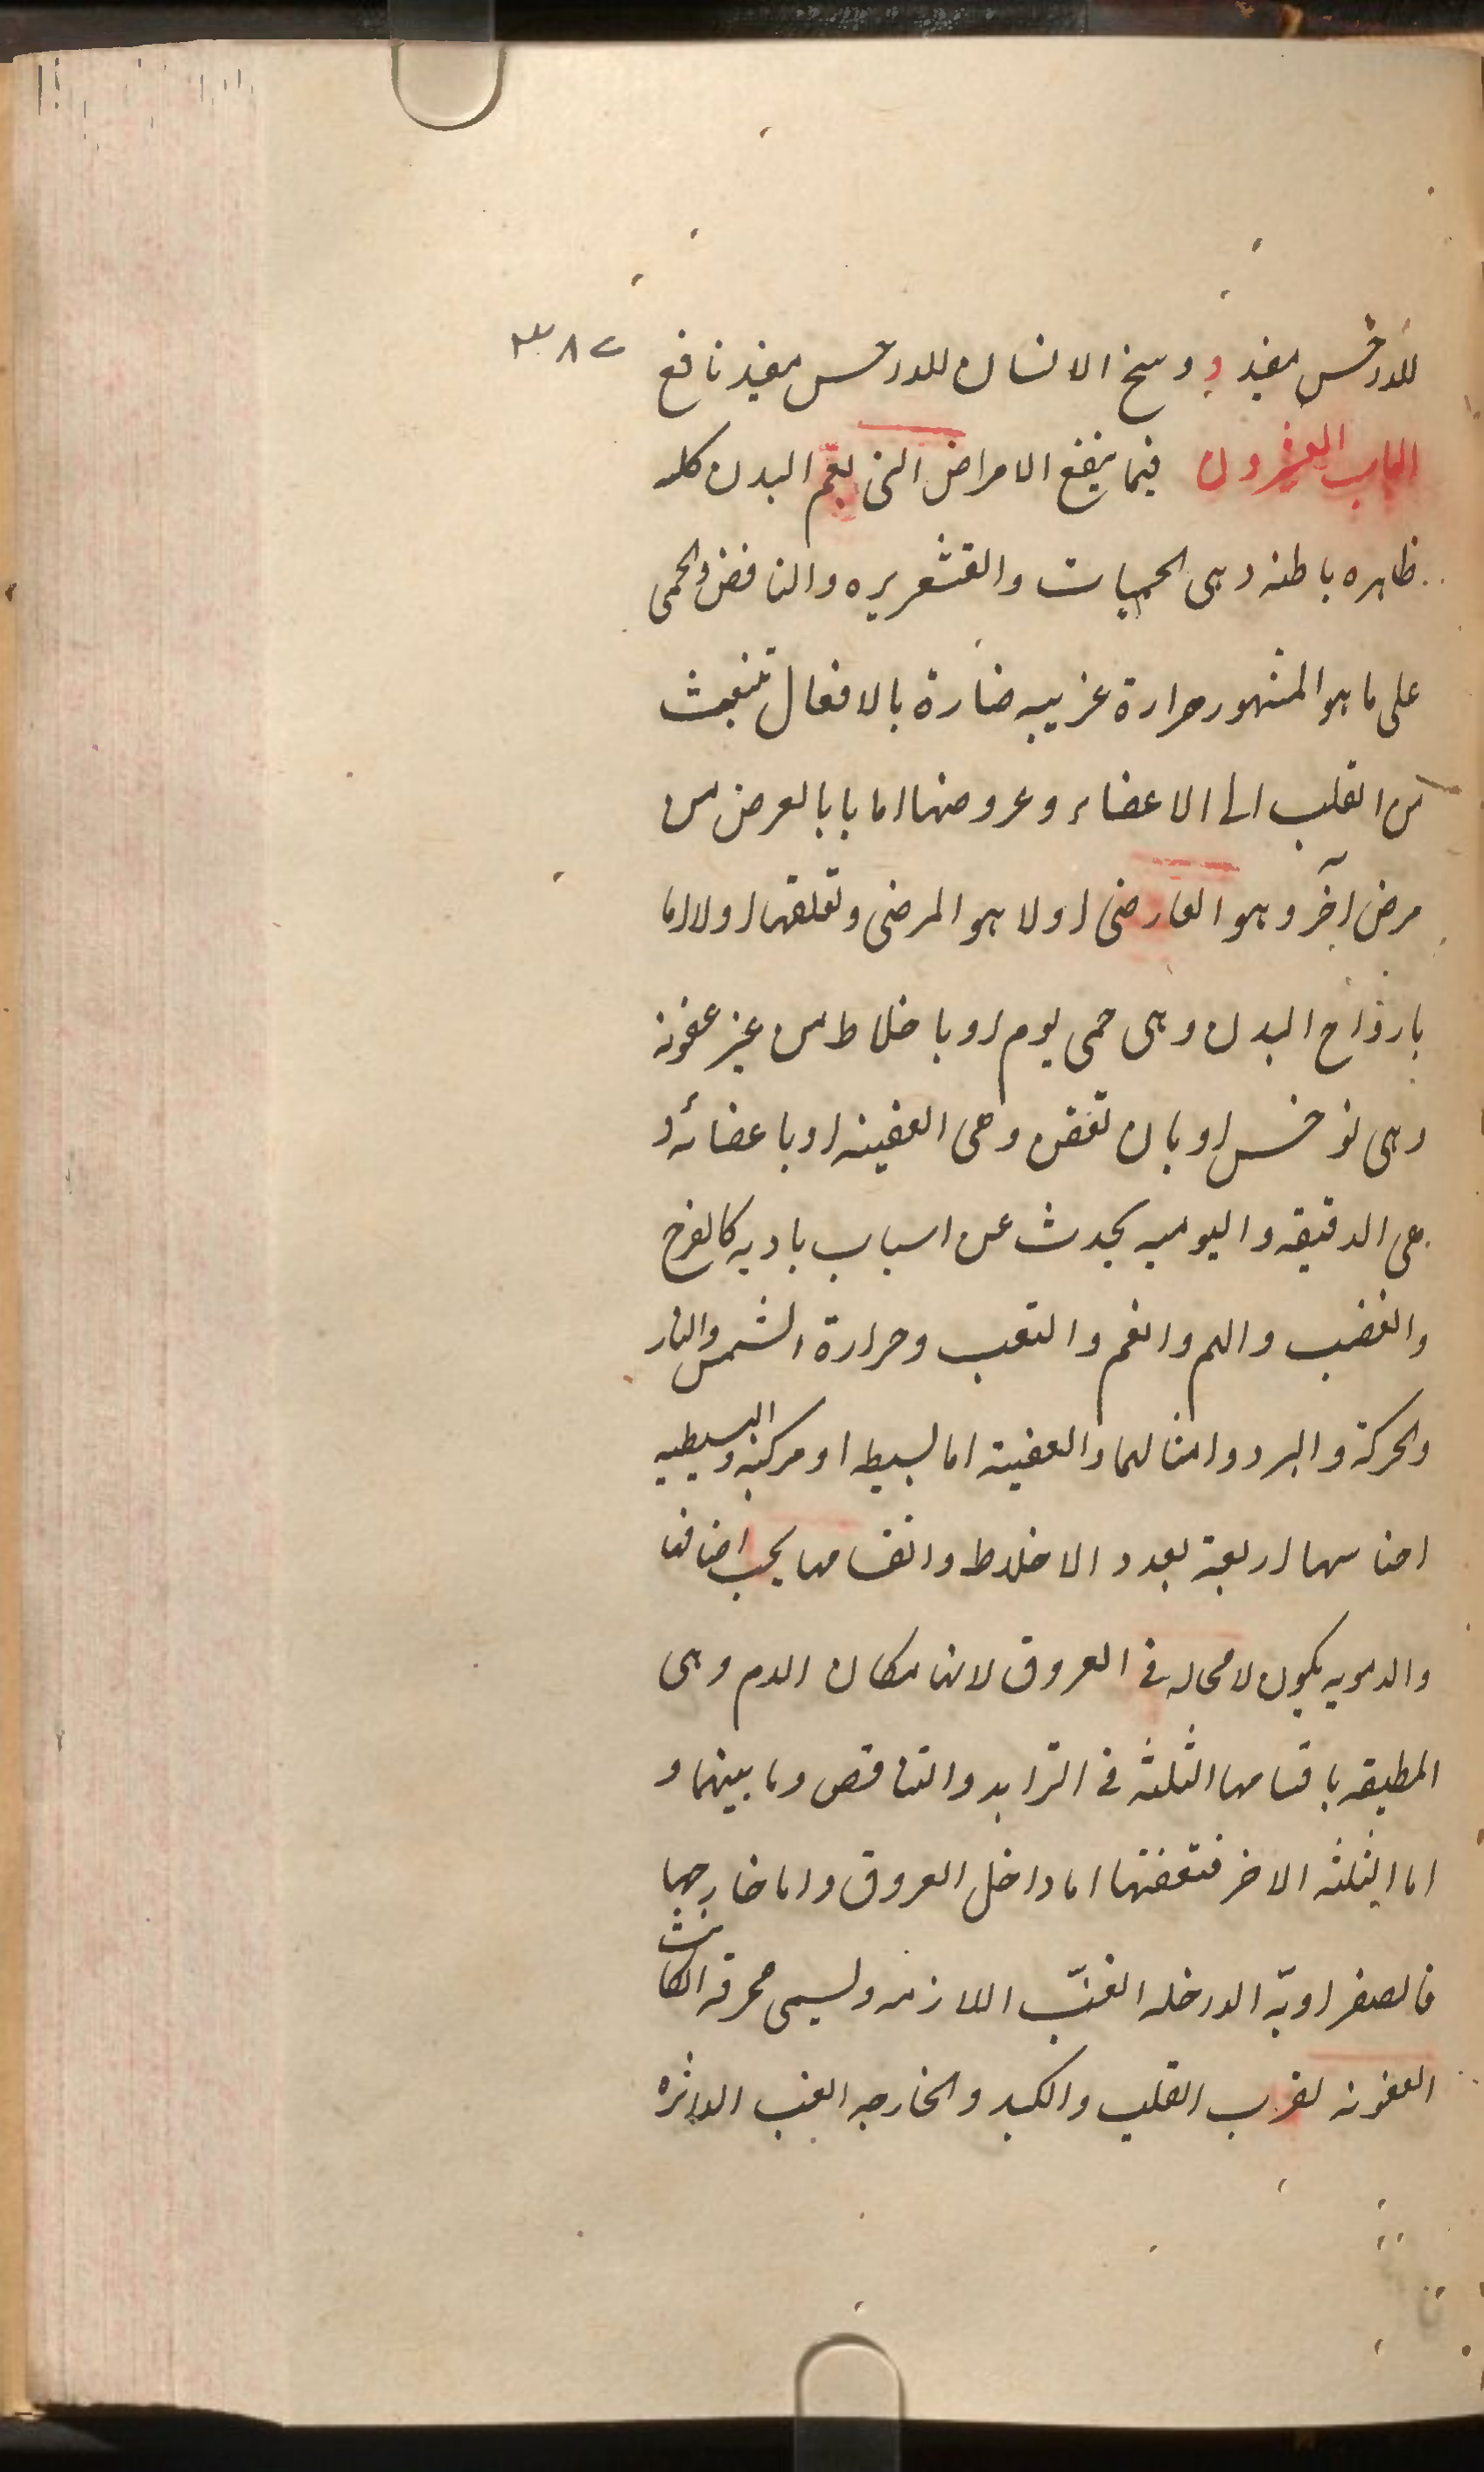 للدرخس مفيد و وسخ الانسان للدرخس مفيد نافع ٣٨٧
الباب العشرون فيما ينفع الامراض التى تعم البدن كله
ظاهره باطنه وهى الحميات والقشعريره والنافض والحمى
على ما هو المشهور حرارة غريبه ضارة بالافعال تنبعث
من القلب الى الاعضاء وعروضها اما با بالعرض من
مرض آخر وهو العارضى اولا هو المرضى وتعلقها اولا اما
بارواح البدن وهى حمى يوم او باخلاط من غير عفونه
وهى نوخس او بان تعفن وهى العفينه او باعضائه و
هى الدقيقه واليوميه يحدث عن اسباب باديه كالفرح
والغضب والهم والغم والتعب وحرارة الشمس والنار
والحركة والبرد وامثالها والعفينة اما بسيطه او مركبه والبسيطيه
اجناسها اربعة بعدد الاخلاط وانقسامها يجب اضافتا
والدمويه يكون لا محاله فى العروق لانها مكان الدم وهى
المطبقه باقسامها الثلثه فى التزايد والتناقص وما بينهما و
اما الثلثه الاخر فتعفنها اما داخل العروق واما خارجها
فالصفراويّه الداخله الغبّ اللازمه ويسمى محرقه ان كانت
العفونه لقرب القلب والكبد والخارجه الغب الدائره